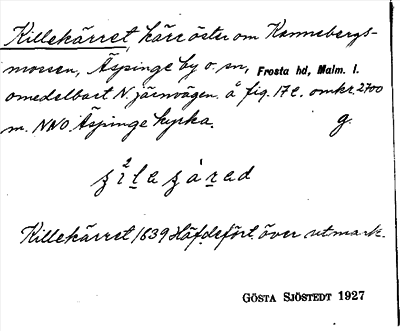 Killekärret, kärr öster om Kannebergs-
mossen, Äspinge by o. sn, Frosta hd, Malm. l.
omedelbart N. järnvägen. å fig. 17 C. omkr. 2700
m. NNO Äspinge kyrka. g.
Killekärret 1839 Häfdeförl. över utmark.
GÖSTA SJÖSTEDT 1927